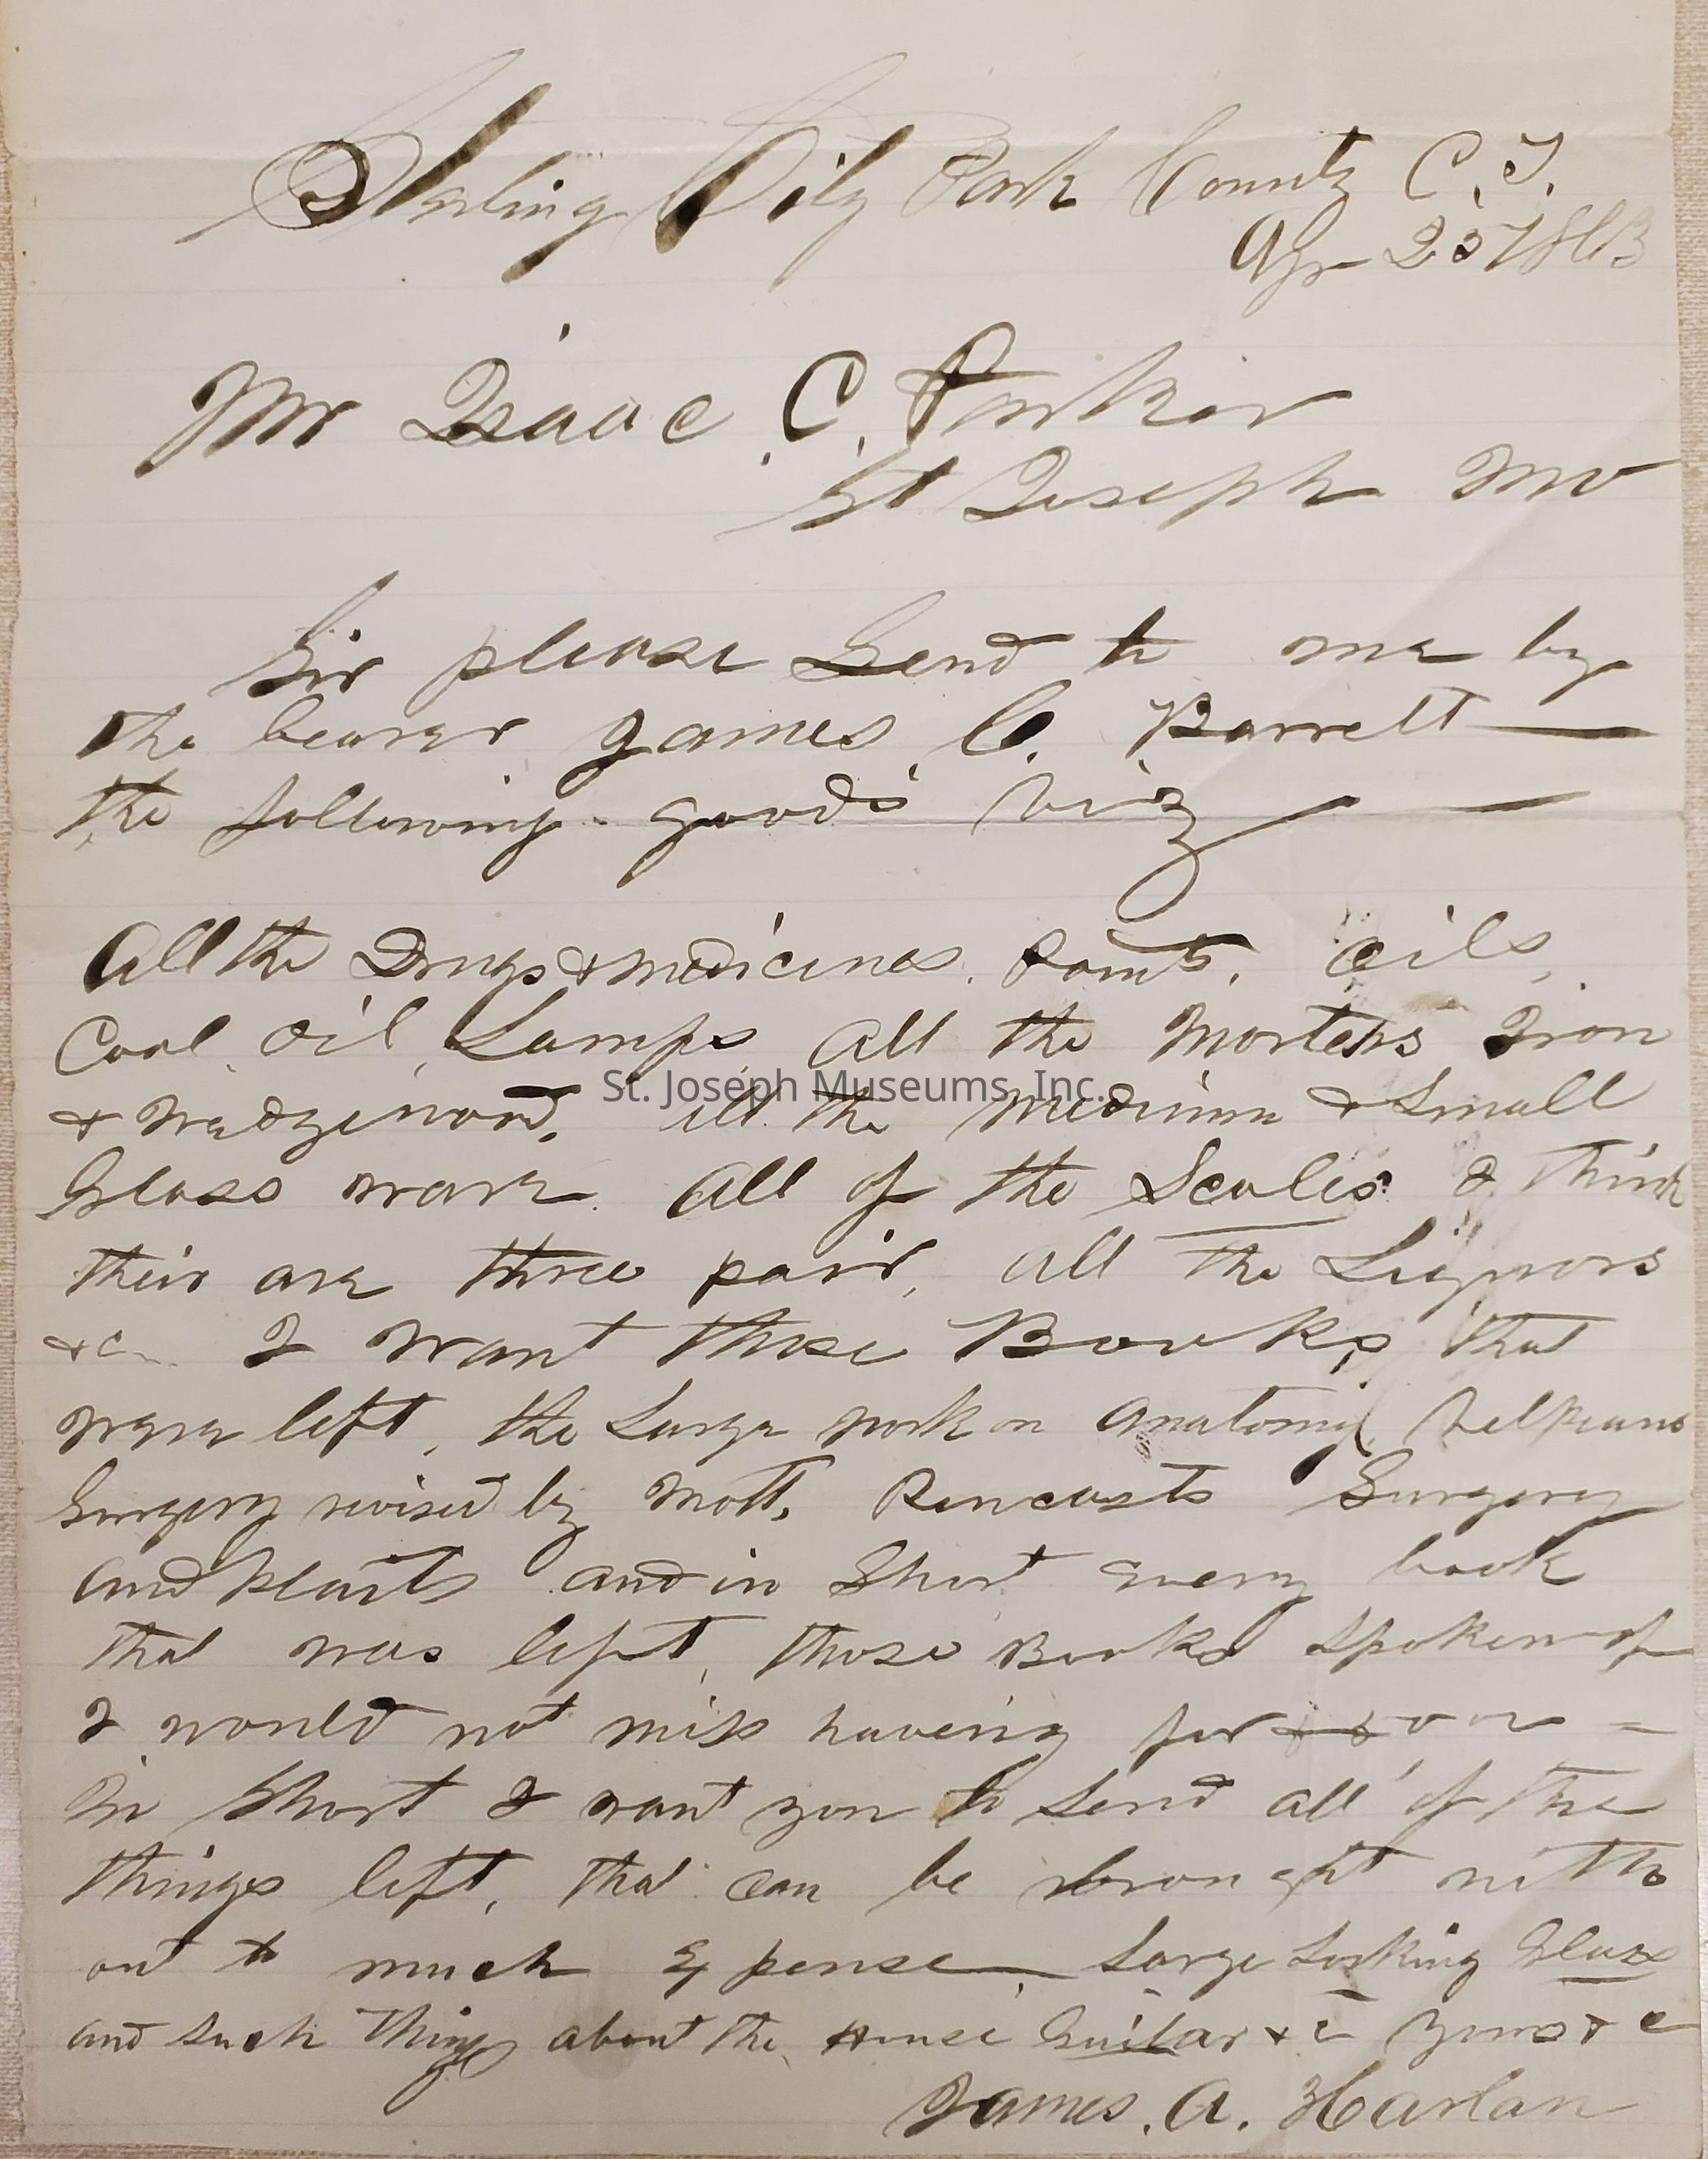 Sterling City Park County C.T.
Apr 25 1863
Mr Isaac C. Parker
St Joseph Mo
Sir please Send to me by
the bearer James C. Barrett
the following goods viz
All the Drugs & medicines. Paints, Oils,
Coal Oil, Lamps, All the Morters Iron
& Wedgewood, all the medium & Small
St. Joseph Museums, Inc.
Glass ware. All of the Scales I think
their are three pair, all the Liquors
&c I want those Books that
were left, the Large work on Anatomy, Velpeaus
Surgery revised by Mott, Pancoasts Surgery
and Plaits and in Short every book
that was left, those Books Spoken of
I would not miss having for
In Short I want you to Send all of the
things left, that can be brought with
out to much Expense Large Looking Glass
and such things about the House Guitar &c Yours &c
James. A. Harlan